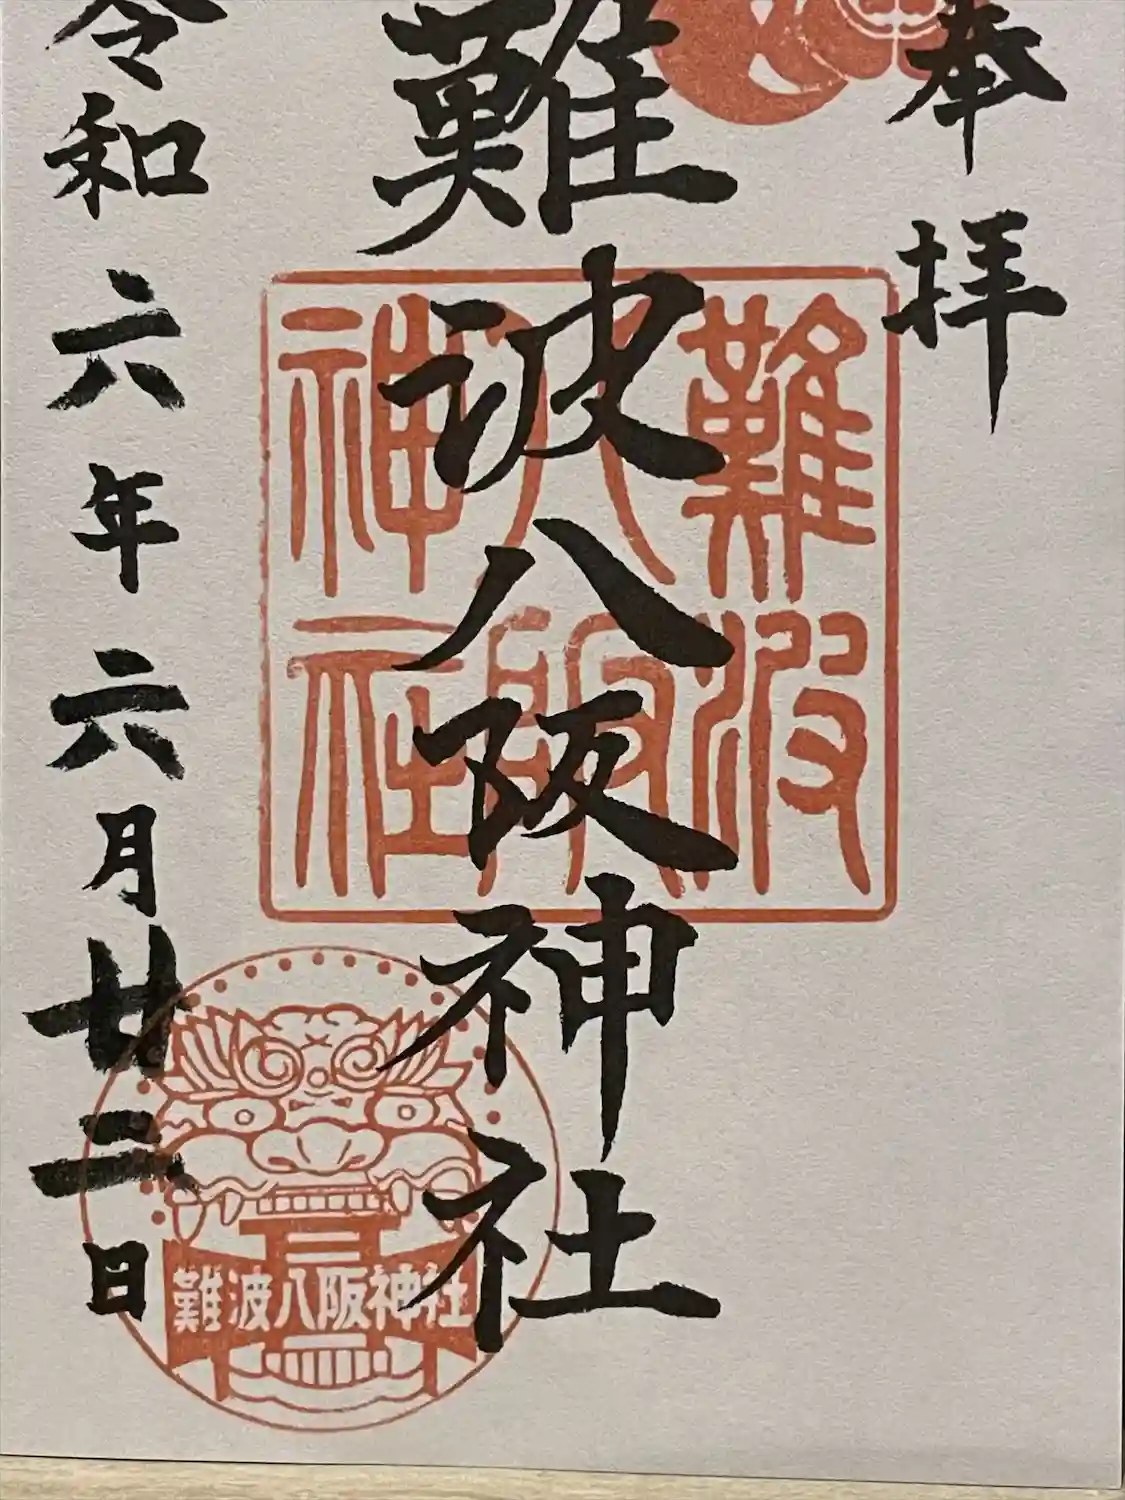 奉拝
難波八阪神社
難波
八阪
神社
難波八阪神社
令和六年六月廿三日